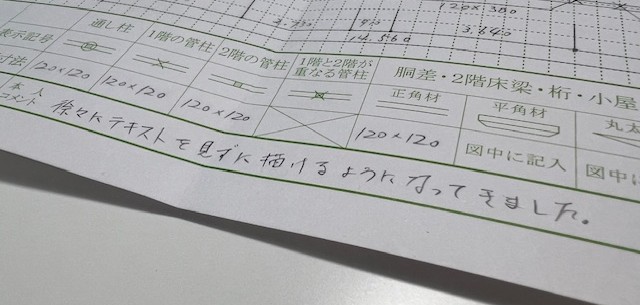 120×300
2.730 910 3.640
14.560
表示記号 通し柱 1階の管柱 2階の管柱 1階と2階が重なる管柱 胴差・2階床梁・桁・小屋
正角材 平角材 丸太
寸法 120×120 120×120 120×120 120×120 図中に記入 図中に
本人コメント 徐々にテキストを見ずに描けるようになってきました。